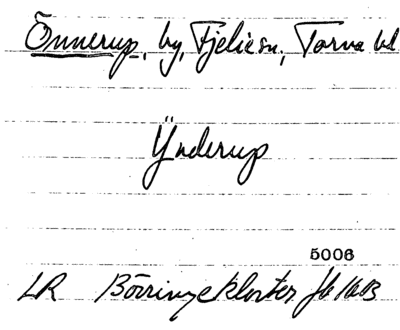 Önnerup, by, Fjelie sn, Torna hd
Ÿnderup
5006
LR Börringekloster Jb 1603